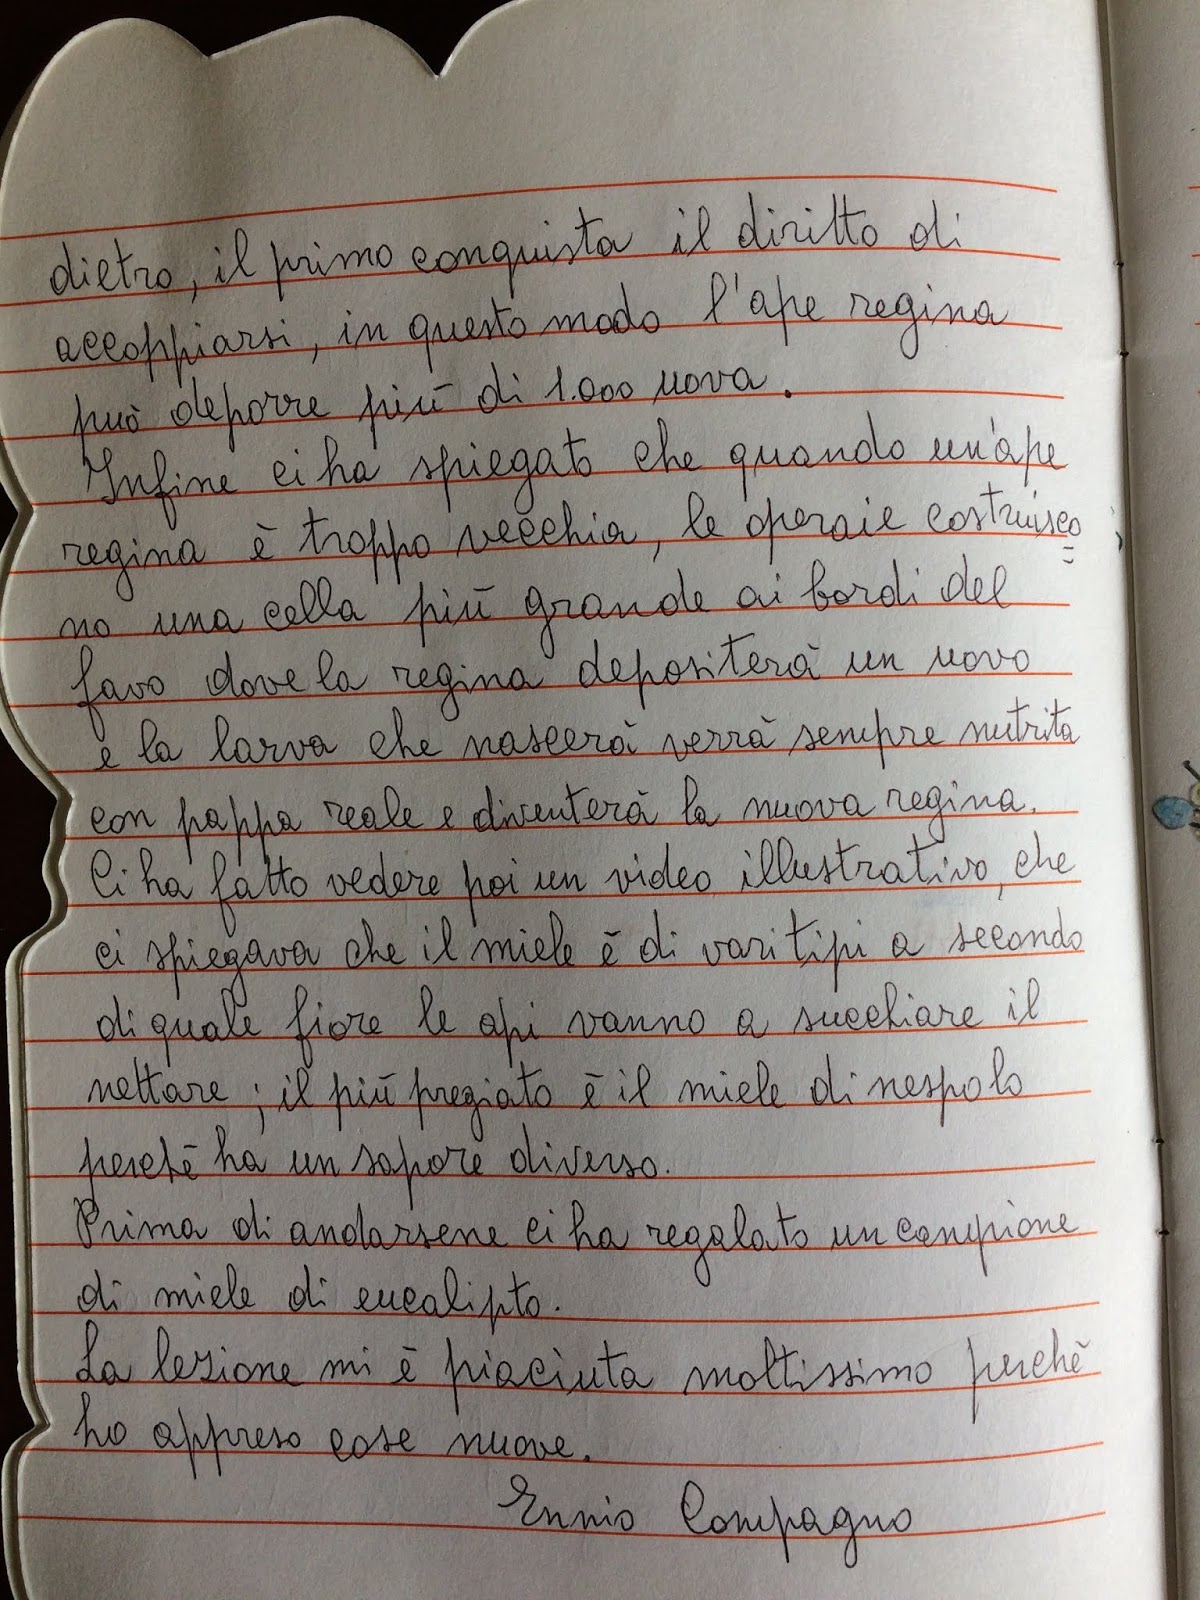 dietro, il primo conquista il diritto di
accoppiarsi, in questo modo l'ape regina
può deporre più di 1.000 uova.
Infine ci ha spiegato che quando un'ape
regina è troppo vecchia, le operaie costruisco=
no una cella più grande ai bordi del
favo dove la regina depositerà un uovo
e la larva che nascerà verrà sempre nutrita
con pappa reale e diventerà la nuova regina.
Ci ha fatto vedere poi un video illustrativo, che
ci spiegava che il miele è di vari tipi a secondo
di quale fiore le api vanno a succhiare il
nettare; il più pregiato è il miele di nespolo
perchè ha un sapore diverso.
Prima di andarsene ci ha regalato un campione
di miele di eucalipto.
La lezione mi è piaciuta moltissimo perchè
ho appreso cose nuove.
Ennio Compagno